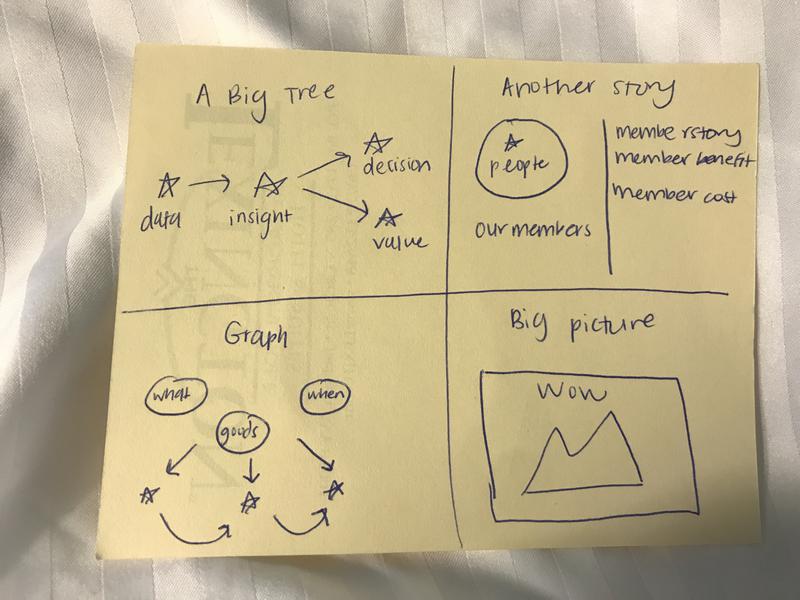 A Big Tree
data
insight
decision
value
Another story
people
our members
memberstory
member benefit
member cost
Graph
what
goods
when
Big picture
WOW